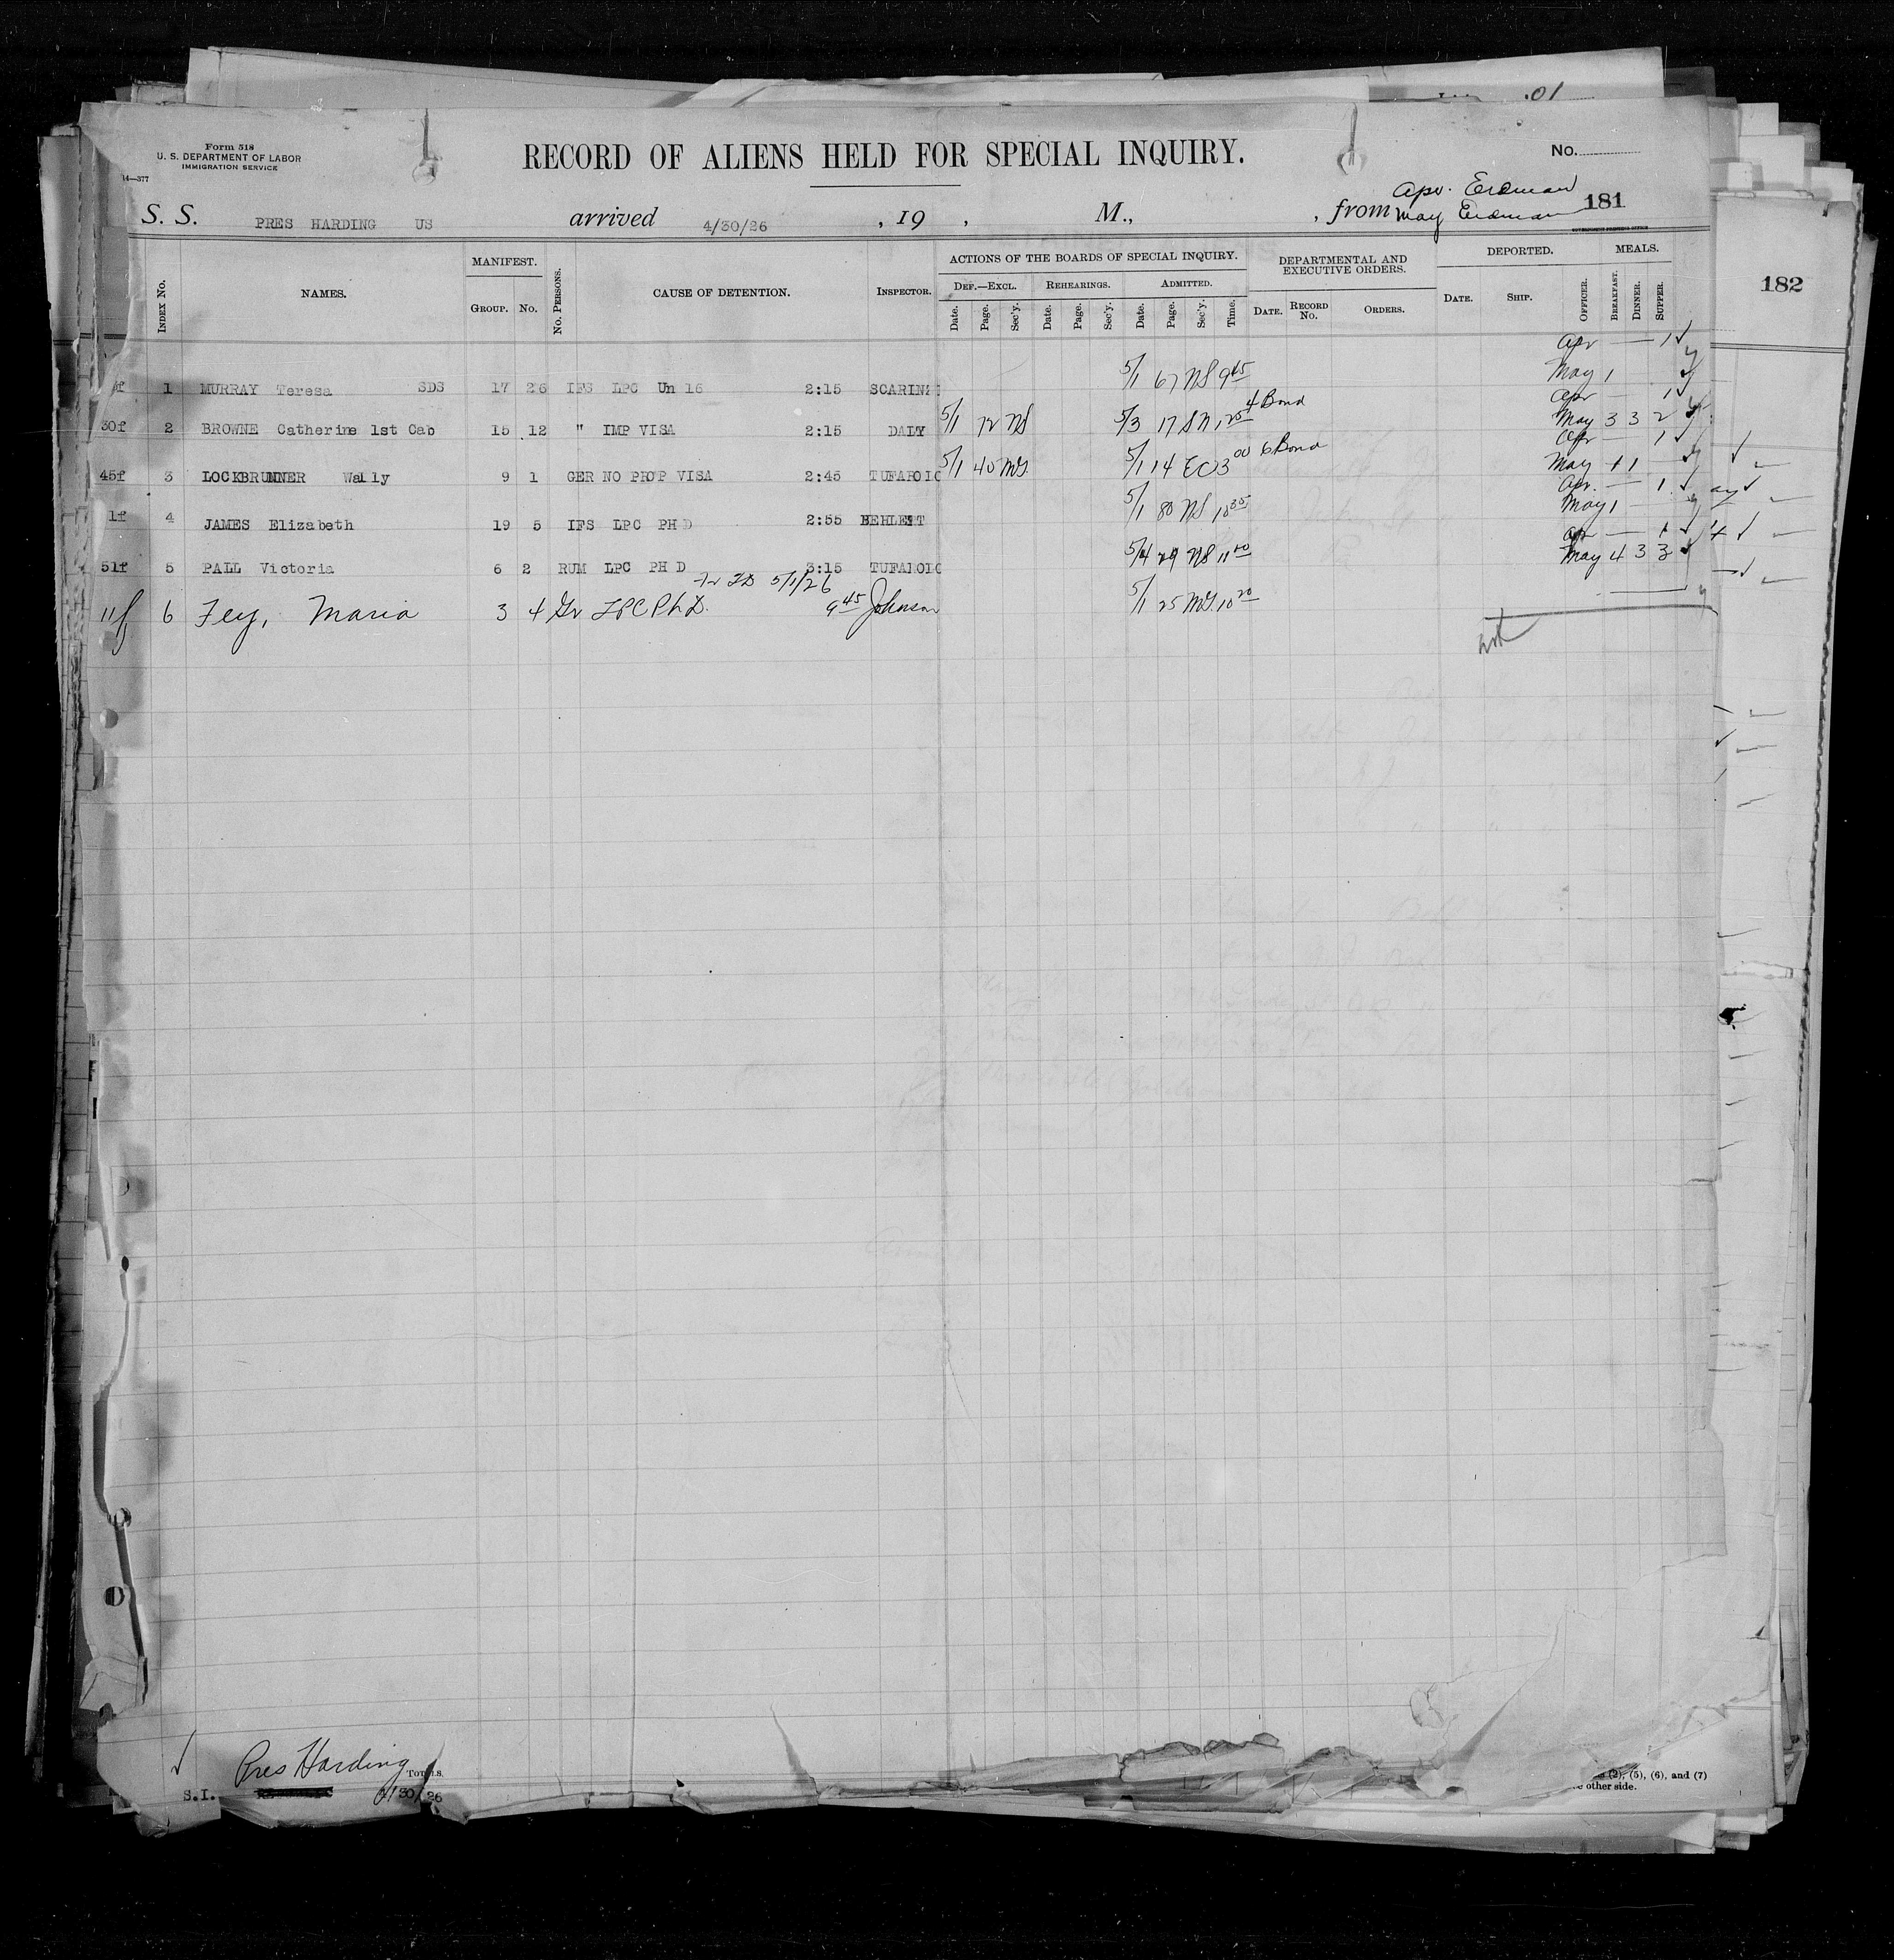 01
Form 518
U. S. DEPARTMENT OF LABOR
IMMIGRATION SERVICE
14—377
RECORD OF ALIENS HELD FOR SPECIAL INQUIRY.
No.
Apr. Erdman
S. S. PRES HARDING US arrived 4/30/26 , 19 , M., , from May Erdman 181
GOVERNMENT PRINTING OFFICE
182
INDEX No. NAMES. MANIFEST. GROUP. No. No. PERSONS. CAUSE OF DETENTION. INSPECTOR. ACTIONS OF THE BOARDS OF SPECIAL INQUIRY. DEF.—EXCL. Date. Page. Sec'y. REHEARINGS. Date. Page. Sec'y. ADMITTED. Date. Page. Sec'y. Time. DEPARTMENTAL AND EXECUTIVE ORDERS. DATE. RECORD No. ORDERS. DEPORTED. DATE. SHIP. OFFICER. MEALS. BREAKFAST. DINNER. SUPPER.
Apr — — 1 ✓
f 1 MURRAY Teresa SDS 17 26 IFS LPC Un 16 2:15 SCARIN 5/1 67 NS 9 45 May 1
Apr — 1
30f 2 BROWNE Catherine 1st Cab 15 12 " IMP VISA 2:15 DALY 5/1 72 NS 5/3 17 SN 1 25 4 Bond May 3 3 2
Apr — 1 ✓
45f 3 LOCKBRUNNER Wally 9 1 GER NO PROP VISA 2:45 TUFAROLO 5/1 40 MG 5/1 14 EC 3 00 6 Bond May 1 1
Apr. — 1 ✓
1f 4 JAMES Elizabeth 19 5 IFS LPC PH D 2:55 5/1 80 NS 10 35 May 1
Apr — 1 ✓
51f 5 PALL Victoria 6 2 RUM LPC PH D 3:15 TUFAROLO 5/4 29 NS 11 40 May 4 3 3
Fr TD 5/1/26
11f 6 Fey, Maria 3 4 Gr LPC Ph D. 9 45 Johnson 5/1 25 MG 10 20
✓ Pres Harding
TOTALS.
S.I. 4/30/26
(2), (5), (6), and (7)
other side.